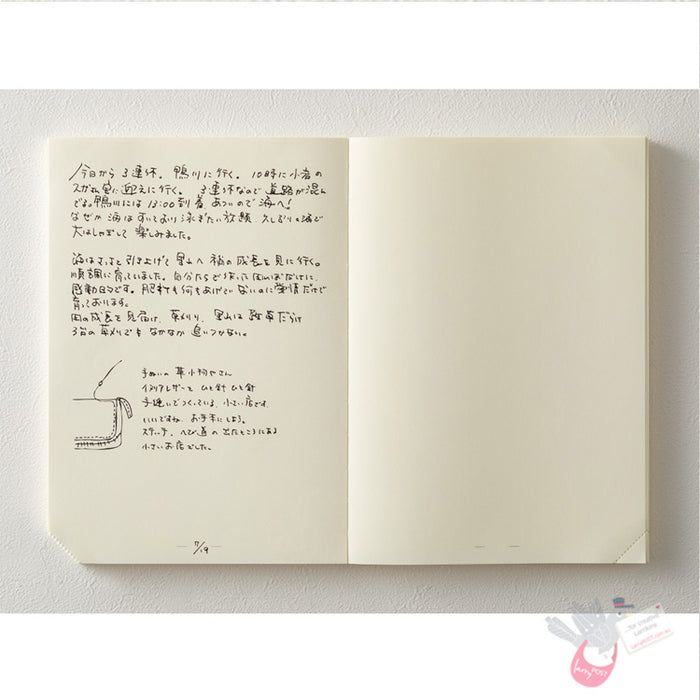 今日から3連休。鴨川に行く。10時に小宮の
迎えに行く。3連休なので道路が混ん
でる。鴨川には13:00到着。あついので海へ!
なぜか海はすいており泳ぎたい放題。久しぶりの海で
大はしゃぎして楽しみました。
海はさっさと引き上げて里山へ稲の成長を見に行く。
順調に育っていました。自分たちで作った田んぼだけに、
感動的です。肥料も何もあげていないのに愛情だけで
育っております。
田の成長を見届け、草刈り。里山は雑草だらけ
3台の草刈りでもなかなか追いつかない。
手ぬいの革小物やさん
イタリアレザーを ひと針 ひと針
手縫いでつくっている、小さい店です。
いいですね、お手本にしよう。
ステッチ。へび道の出たところにある
小さいお店でした。
7/19
...for creative
Larrikins
LarryPOST.com.au
larry
POST